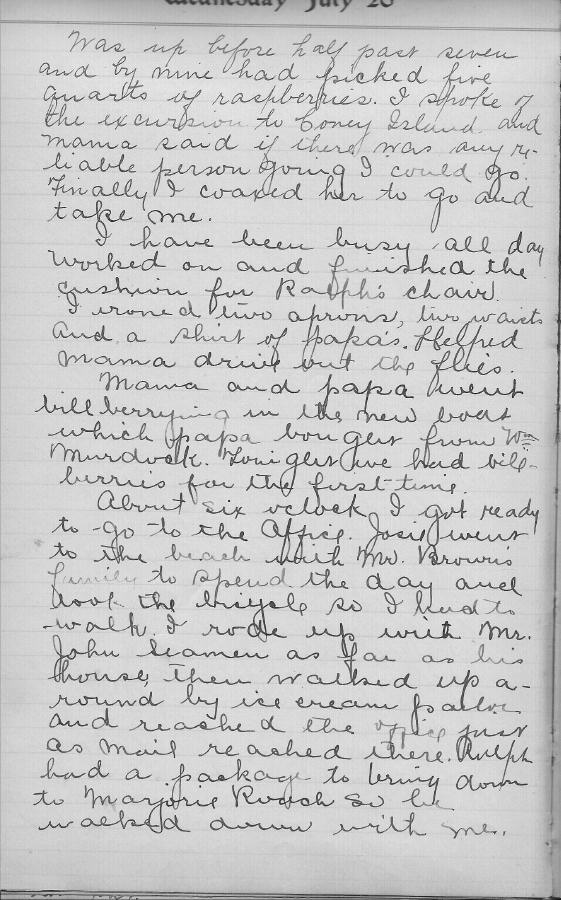 Wednesday July 20
Was up before half past seven
and by nine had picked five
quarts of raspberries. I spoke of
the excursion to Coney Island and
mama said if there was any re-
liable person going I could go.
Finally I coaxed her to go and
take me.
I have been busy all day
worked on and finished the
cushion for Ralph's chair.
I ironed two aprons, two waists
and a shirt of papa's. Helped
mama drive out the flies.
Mama and papa went
billberrying in the new boat
which papa bought from Wm
Murdock. Tonight we had bill-
berries for the first time.
About six oclock I got ready
to go to the Office. Josie went
to the beach with Mr. Brown's
family to spend the day and
took the bicycle so I had to
walk. I rode up with Mr.
John Seamen as far as his
house, then walked up a-
round by ice cream parlor
and reached the office just
as mail reached there. Ralph
had a package to bring down
to Marjorie Roach so he
walked down with me.